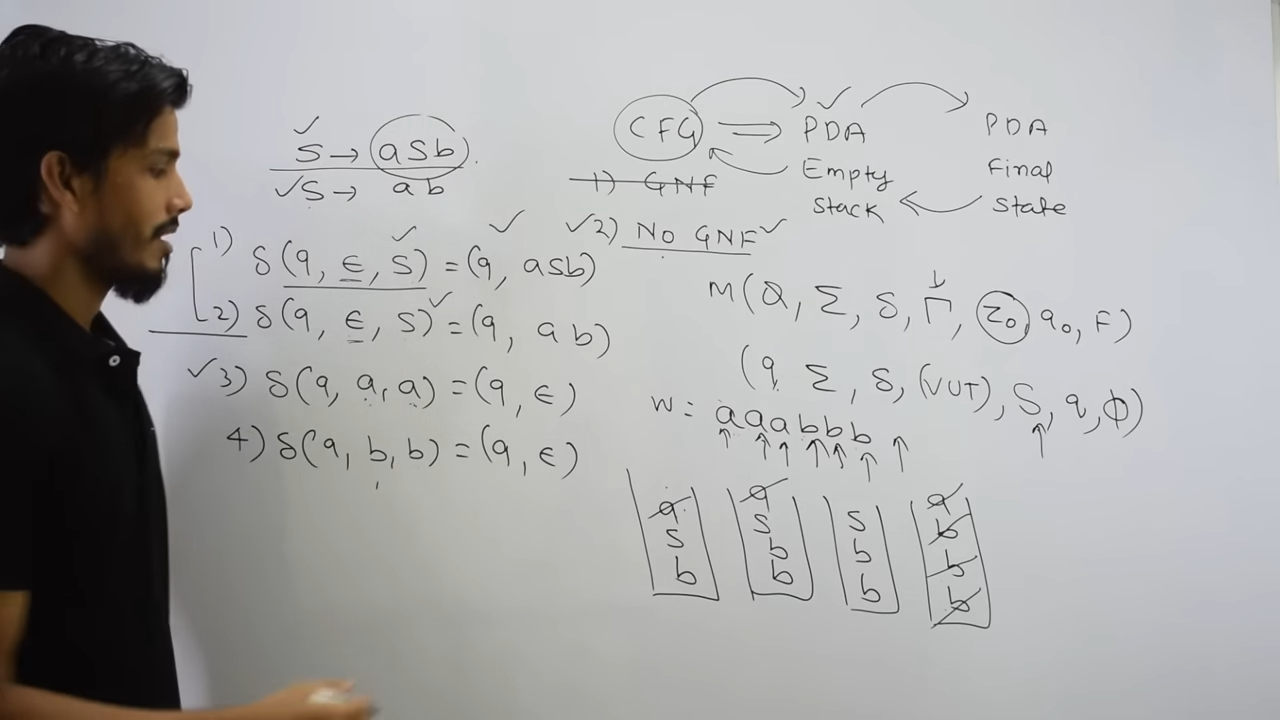 S → asb.
S → ab
1) δ(q, ε, S) = (q, asb)
2) δ(q, ε, S) = (q, ab)
3) δ(q, a, a) = (q, ε)
4) δ(q, b, b) = (q, ε)
CFG ⇒ PDA PDA
Empty Final
Stack State
1) GNF
2) NO GNF
M(Q, Σ, δ, Γ, z₀, q₀, F)
(q, Σ, δ, (VUT), S, q, Φ)
W = aaabbb
a a s a
s s b b
b b b b
b b